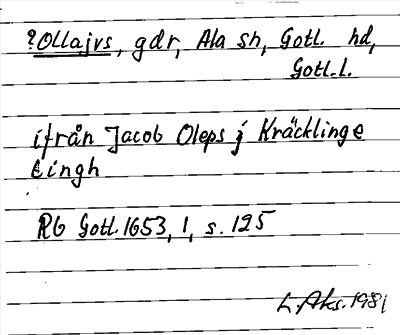 ?Ollajvs, gdr, Ala sn, Gotl. hd,
Gotl. l.
ifrån Jacob Oleps j Kräcklinge
tingh
Rb Gotl. 1653, 1, s. 125
L. Aks. 1981